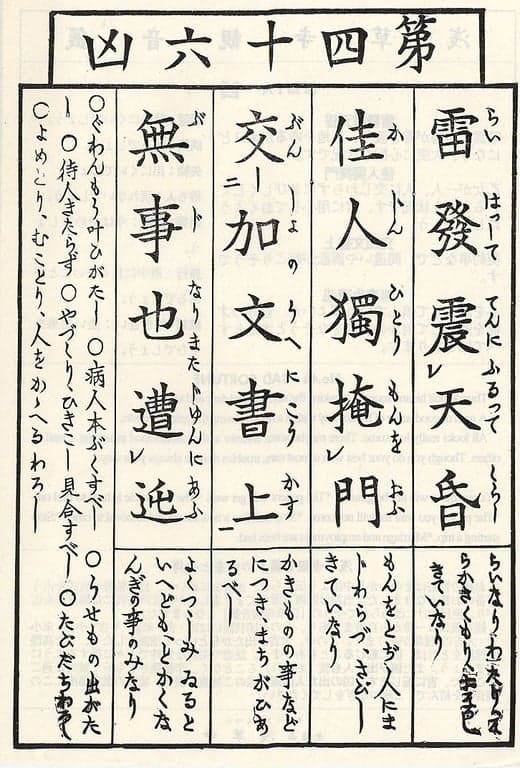 第四十六凶
雷發震レ天昏
らい はつって てんに ふるって くらし
きていなり
佳人獨掩レ門
かじん ひとり もんを おふ
もんをとぢ人にま
じわらづさびし
きていなり
交二加文書上一
ぶんしよのうへにこうかす
かきものの事など
につきまちがひあ
るべし
無事也遭レ迍
ぶじ なりまたじゆんにあふ
よくつゝしみゐると
いへどもとかくな
んぎの事のみなり
〇ぐわんもう叶ひがたし 〇病人本ぶくすべ 〇うせもの出がた
し 〇待人きたらず 〇やづくりひきこし見合すべし 〇たびだちわろし
〇よめとり、むことり、人をかゝへるわろし